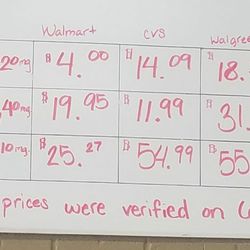 Walmart CVS Walgree
20mg $4.00 $14.09 $18.
40mg $19.95 $11.99 $31.
10mg. $25.27 $54.99 $55
prices were verified on